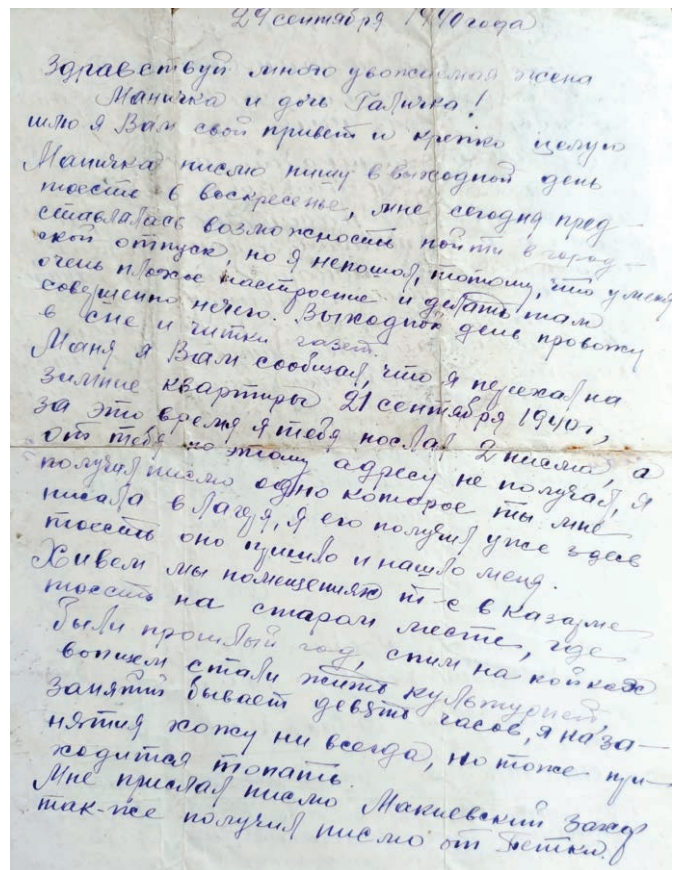 29 сентября 1940 года
Здравствуй много уважаемая жена
Маничка и дочь Галичка!
шлю я Вам свой привет и крепко целую
Маничка писмо пишу в выходной день
тоесть в воскресенье, мне сегодня пред-
ставлялась возможность пойти в город-
ской отпуск, но я непошол, потому, что у меня
очень плохое настроение и делать там
совершенно нечего. Выходной день провожу
в сне и читки газет.
Маня я Вам сообщал, что я переехал на
зимние квартиры 21 сентября 1940 г,
за это время я тебя послал 2 писма, а
от тебя по этому адресу не получал, я
получил писмо одно которое ты мне
писала в лагеря, я его получил уже здесь
тоесть оно пришло и нашло меня.
Живем мы помещениях т-е в казарме
тоесть на старом месте, где
были прошлый год, спим на койках
вопщем стали жить культурней,
занятий бывает девять часов, я на за-
нятия хожу ни всегда, но тоже при-
ходится топать.
Мне прислал писмо Макиевский Захар
так-же получил писмо от Петки.